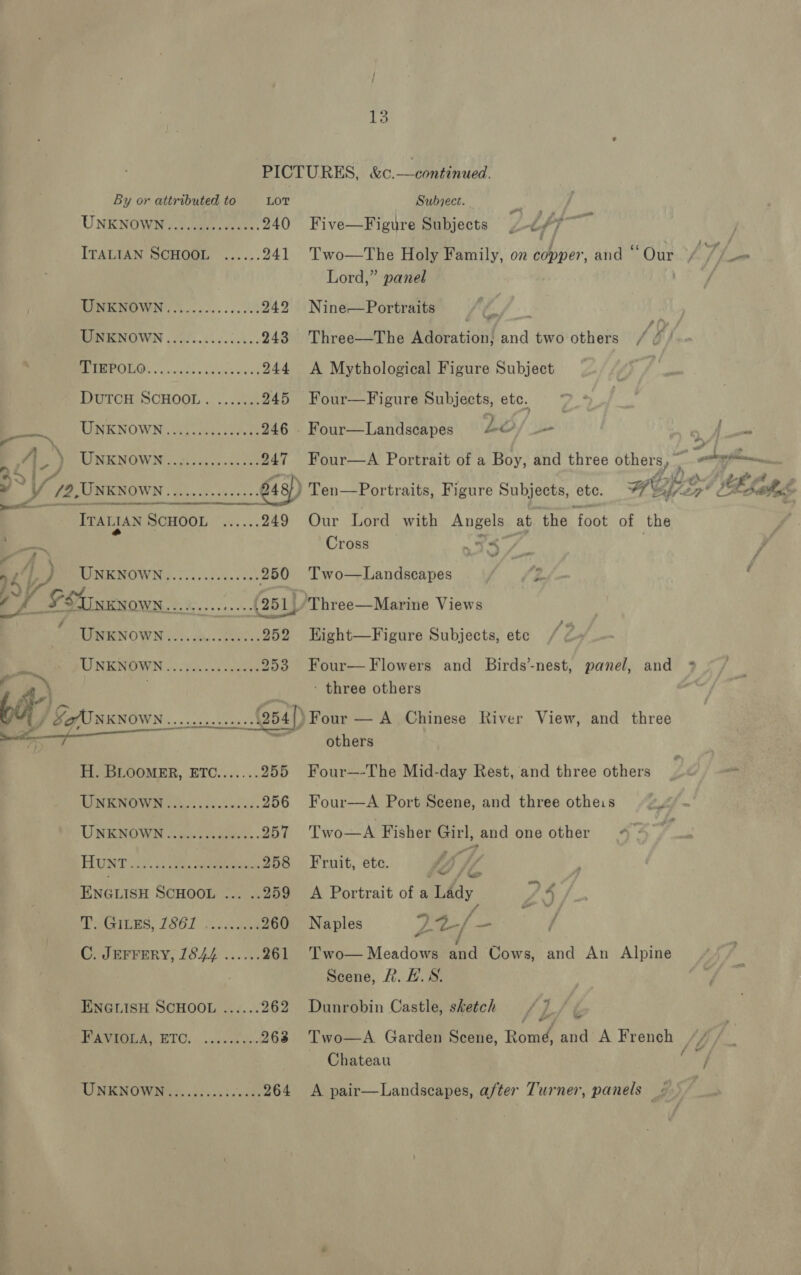 13
PICTURES, &c.—continued.
By or attributed to LOT Subject.
UNKNOWN............... 240 Five—Figure Subjects
ITALIAN SCHOOL ...... 241 Two—The Holy Family, on copper, and “Our
Lord,” panel
UNKNOWN............... 242 Nine—Portraits
UNKNOWN............... 243 Three—The Adoration, and two others
TIEPOLO.................. 244 A Mythological Figure Subject
DUTCH SCHOOL......... 245 Four—Figure Subjects, etc.
UNKNOWN............... 246 Four—Landscapes
UNKNOWN............... 247 Four—A Portrait of a Boy, and three others,
UNKNOWN............... 248 Ten—Portraits, Figure Subjects, etc.
ITALIAN SCHOOL ...... 249 Our Lord with Angels at the foot of the
Cross
UNKNOWN............... 250 Two—Landscapes
UNKNOWN............... 251 Three—Marine Views
UNKNOWN............... 252 Eight—Figure Subjects, etc
UNKNOWN............... 253 Four—Flowers and Birds’-nest, panel, and
three others
UNKNOWN............... 254 Four — A Chinese River View, and three
others
H. BLOOMER, ETC....... 255 Four—The Mid-day Rest, and three others
UNKNOWN............... 256 Four—A Port Scene, and three others
UNKNOWN............... 257 Two—A Fisher Girl, and one other
HUNT..................... 258 Fruit, etc.
ENGLISH SCHOOL ... ..259 A Portrait of a Lady
T. GILES, 1861 ......... 260 Naples
C. JEFFERY, 1844 ...... 261 Two—Meadows and Cows, and An Alpine
Scene, R.H.S.
ENGLISH SCHOOL ...... 262 Dunrobin Castle, sketch
FAVIOLA, ETC. ......... 263 Two—A Garden Scene, Rome, and A French
Chateau
UNKNOWN............... 264 A pair—Landscapes, after Turner, panels